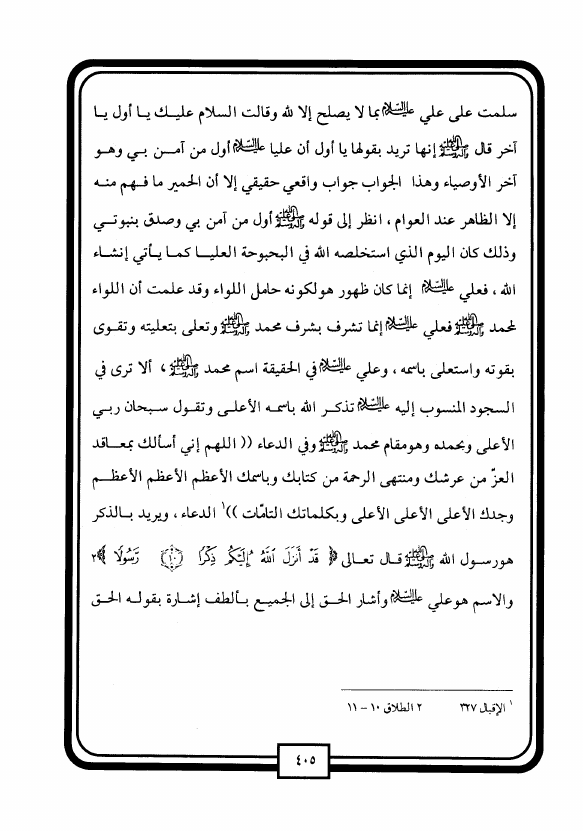 سلمت على علي عليه السلام بما لا يصلح إلا لله وقالت السلام عليك يا أول يا
آخر قال صلى الله عليه وآله إنها تريد بقولها يا أول أن عليا عليه السلام أول من آمن بي وهو
آخر الأوصياء وهذا الجواب جواب واقعي حقيقي إلا أن الحمير ما فهم منه
إلا الظاهر عند العوام ، انظر إلى قوله صلى الله عليه وآله أول من آمن بي وصدق بنبوتي
وذلك كان اليوم الذي استخلصه الله في البحبوحة العليا كما يأتي إنشاء
الله ، فعلي عليه السلام إنما كان ظهور هولكونه حامل اللواء وقد علمت أن اللواء
لمحمد صلى الله عليه وآله فعلي عليه السلام إنما تشرف بشرف محمد صلى الله عليه وآله وتعلى بتعليته وتقوى
بقوته واستعلى باسمه ، وعلي عليه السلام في الحقيقة اسم محمد صلى الله عليه وآله ، ألا ترى في
السجود المنسوب إليه عليه السلام تذكر الله باسمه الأعلى وتقول سبحان ربي
الأعلى وبحمده وهومقام محمد صلى الله عليه وآله وفي الدعاء (( اللهم إني أسألك بمعاقد
العزّ من عرشك ومنتهى الرحمة من كتابك وباسمك الأعظم الأعظم الأعظم
وجدك الأعلى الأعلى الأعلى وبكلماتك التامّات ))١ الدعاء ، ويريد بالذكر
هورسول الله صلى الله عليه وآله قال تعالى ﴿ قَدْ أَنزَلَ ٱللَّهُ إِلَيْكُمْ ذِكْرًا ۝١٠ رَّسُولًا ﴾٢
والاسم هوعلي عليه السلام وأشار الحق إلى الجميع بألطف إشارة بقوله الحق
١ الإقبال ٣٢٧ ٢ الطلاق ١٠ – ١١
٤٠٥